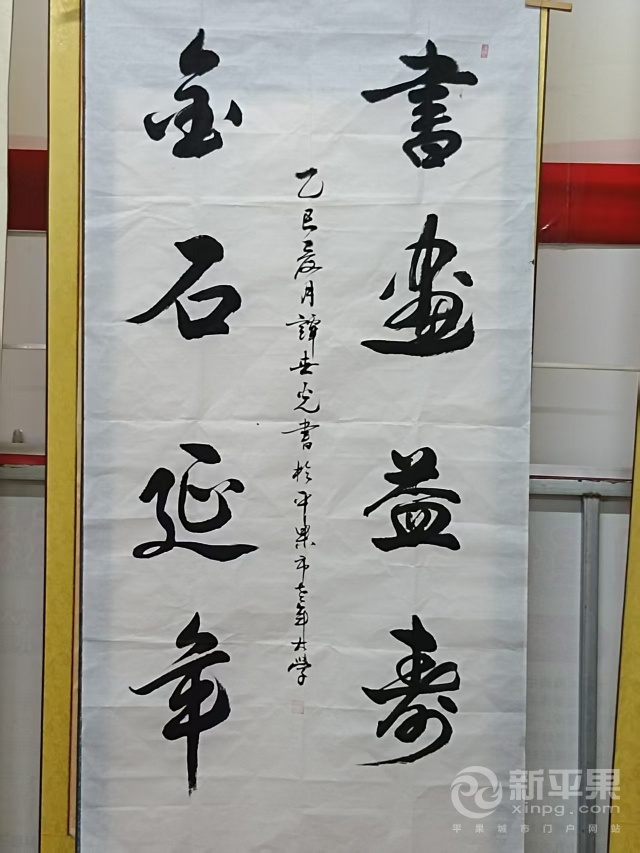 書畫益壽
金石延年
乙巳夏月譚世光書於平果市老年大學
新平果
xinpg.com
平果城市门户网站